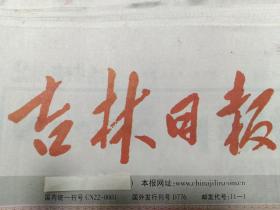 吉林日报
） 本报网址:www.chinajilin.com.cn
国内统一刊号 CN22-0001 国外发行刊号 D776 邮发代号:11—1